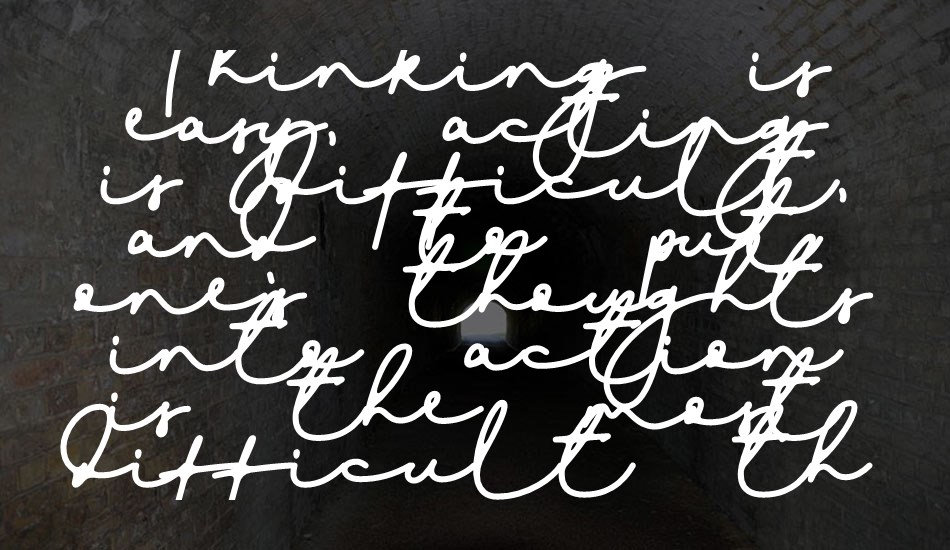 Thinking is
easy, acting
is difficult,
and to put
one's thoughts
into action
is the most
difficult th